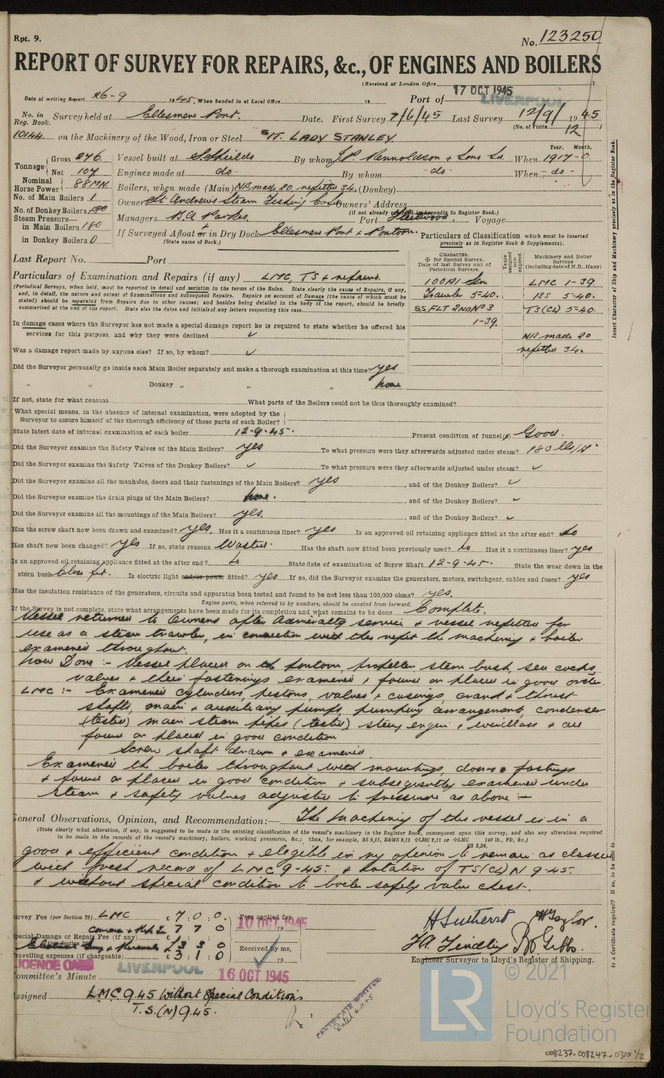 Rpt. 9.
No. 123250
REPORT OF SURVEY FOR REPAIRS, &c., OF ENGINES AND BOILERS
(Received at London Office 17 OCT 1945
Date of writing Report 26-9 1945. When handed in at Local Office 19 Port of LIVERPOOL
No. in Reg. Book. Survey held at Ellesmere Port. Date. First Survey 7/6/45 Last Survey 12/9/1945
(No. of Visits 12)
10144 on the Machinery of the Wood, Iron or Steel ST. LADY STANLEY
Tonnage Gross 276 Vessel built at S. Shields By whom J.P. Rennoldson & Sons Ld. When 1917-0
Year. Month.
Net 107 Engines made at do By whom -do- When -do-
Nominal Horse Power 88 MN. Boilers, when made (Main) NB made 20 refitted 34. (Donkey)
No. of Main Boilers 1 Owners St. Andrews Steam Fishing Co Ld Owners' Address
(if not already in Register Book.)
No. of Donkey Boilers
Steam Pressure—
in Main Boilers 180
in Donkey Boilers 0
Managers H.A. Parkes. Port Fleetwood Voyage
If Surveyed Afloat or in Dry Dock Ellesmere Port & Pontoon.
(State name of Dock.)
Particulars of Classification which must be inserted
precisely as in Register Book & Supplements).
Last Report No. Port
Particulars of Examination and Repairs (if any) LMC, TS & repairs.
CHARACTER.
for Special Survey.
Date of last Survey and of Periodical Surveys.
Machinery and Boiler Surveys
(including date of N.B., if any)
100A1
Trawler 5-40.
SS. FLT 2ND NO 3
1-39.
LMC 1-39
BS 5-40.
TS(CL) 5-40
NB made 20
refitted 34.
Insert Character of Ship and Machinery precisely as in the Register Book.
In damage cases where the Surveyor has not made a special damage report he is required to state whether he offered his
services for this purpose, and why they were declined ✓
Was a damage report made by anyone else? If so, by whom? ✓
Did the Surveyor personally go inside each Main Boiler separately and make a thorough examination at this time? yes
„ „ Donkey „ „ „ none
If not, state for what reasons What parts of the Boilers could not be thus thoroughly examined?
What special means, in the absence of internal examination, were adopted by the
Surveyor to assure himself of the thorough efficiency of those parts of each Boiler?
State latest date of internal examination of each boiler 12-9-45. Present condition of funnel Good.
Did the Surveyor examine the Safety Valves of the Main Boilers? yes To what pressure were they afterwards adjusted under steam? 180 lbs/□"
Did the Surveyor examine the Safety Valves of the Donkey Boilers? ✓ To what pressure were they afterwards adjusted under steam? ✓
Did the Surveyor examine all the manholes, doors and their fastenings of the Main Boilers? yes , and of the Donkey Boilers? ✓
Did the Surveyor examine the drain plugs of the Main Boilers? none. , and of the Donkey Boilers? ✓
Did the Surveyor examine all the mountings of the Main Boilers? yes. , and of the Donkey Boilers? ✓
Has the screw shaft now been drawn and examined? yes. Has it a continuous liner? yes Is an approved oil retaining appliance fitted at the after end? No
Has shaft now been changed? yes If so, state reasons Wasted. Has the shaft now fitted been previously used? No Has it a continuous liner? yes
Is an approved oil retaining appliance fitted at the after end? No State date of examination of Screw Shaft 12-9-45. State the wear down in the
stern bush close fit. Is electric light and/or power fitted? yes. If so, did the Surveyor examine the generators, motors, switchgear, cables and fuses? yes
Has the insulation resistance of the generators, circuits and apparatus been tested and found to be not less than 100,000 ohms? yes.
Engine parts, when referred to by numbers, should be counted from forward.
If the Survey is not complete, state what arrangements have been made for its completion and what remains to be done Complete.
Vessel returned to Owners after Admiralty service & vessel refitted for
use as a steam trawler, in connection with this refit the machinery & boiler
examined throughout.
Now Done:- Vessel placed on the pontoon, propeller, stern bush, sea cocks,
valves & their fastenings examined & found or placed in good order.
LMC:- Examined cylinders, pistons, valves & casings, crank & thrust
shafts, main & auxiliary pumps, pumping arrangements, condenser
(tested) main steam pipes (tested) steering engine & windlass & all
found or placed in good condition
Screw shaft drawn & examined
Examined the boiler throughout with mountings, doors & fastenings
& found or placed in good condition & subsequently examined under
steam & safety valves adjusted to pressure as above:-
General Observations, Opinion, and Recommendation:— The machinery of this vessel is in a
(State clearly what alteration, if any, is suggested to be made in the existing classification of the vessel's machinery in the Register Book, consequent upon this survey, and also any alteration required
good & efficient condition & eligible in my opinion to remain as classed
with fresh record of LMC 9-45. & notation of TS(CL) N 9-45.
& without special condition to boiler safety valve chest.
Survey Fee (per Section 29) LMC £ 7 : 0 : 0. Fees applied for
10 OCT 1945
Special Damage or Repair Fee (if any)
£ 7 7 0
£ 3 3 0
Travelling expenses (if chargeable) £ 3 : 1 : 0
Received by me,
19
H. Sutherst W Taylor.
F.A. Findlay B. Gibbs.
Engineer Surveyor to Lloyd's Register of Shipping.
LIVERPOOL
16 OCT 1945
Committee's Minute
Assigned LMC 9.45 Without Special Conditions
T.S.(N) 9.45.
CERTIFICATE WRITTEN
Is a Certificate required? If so, to be sent to
© 2021
LR
Lloyd's Register
Foundation
008237-008247-0310 1/2